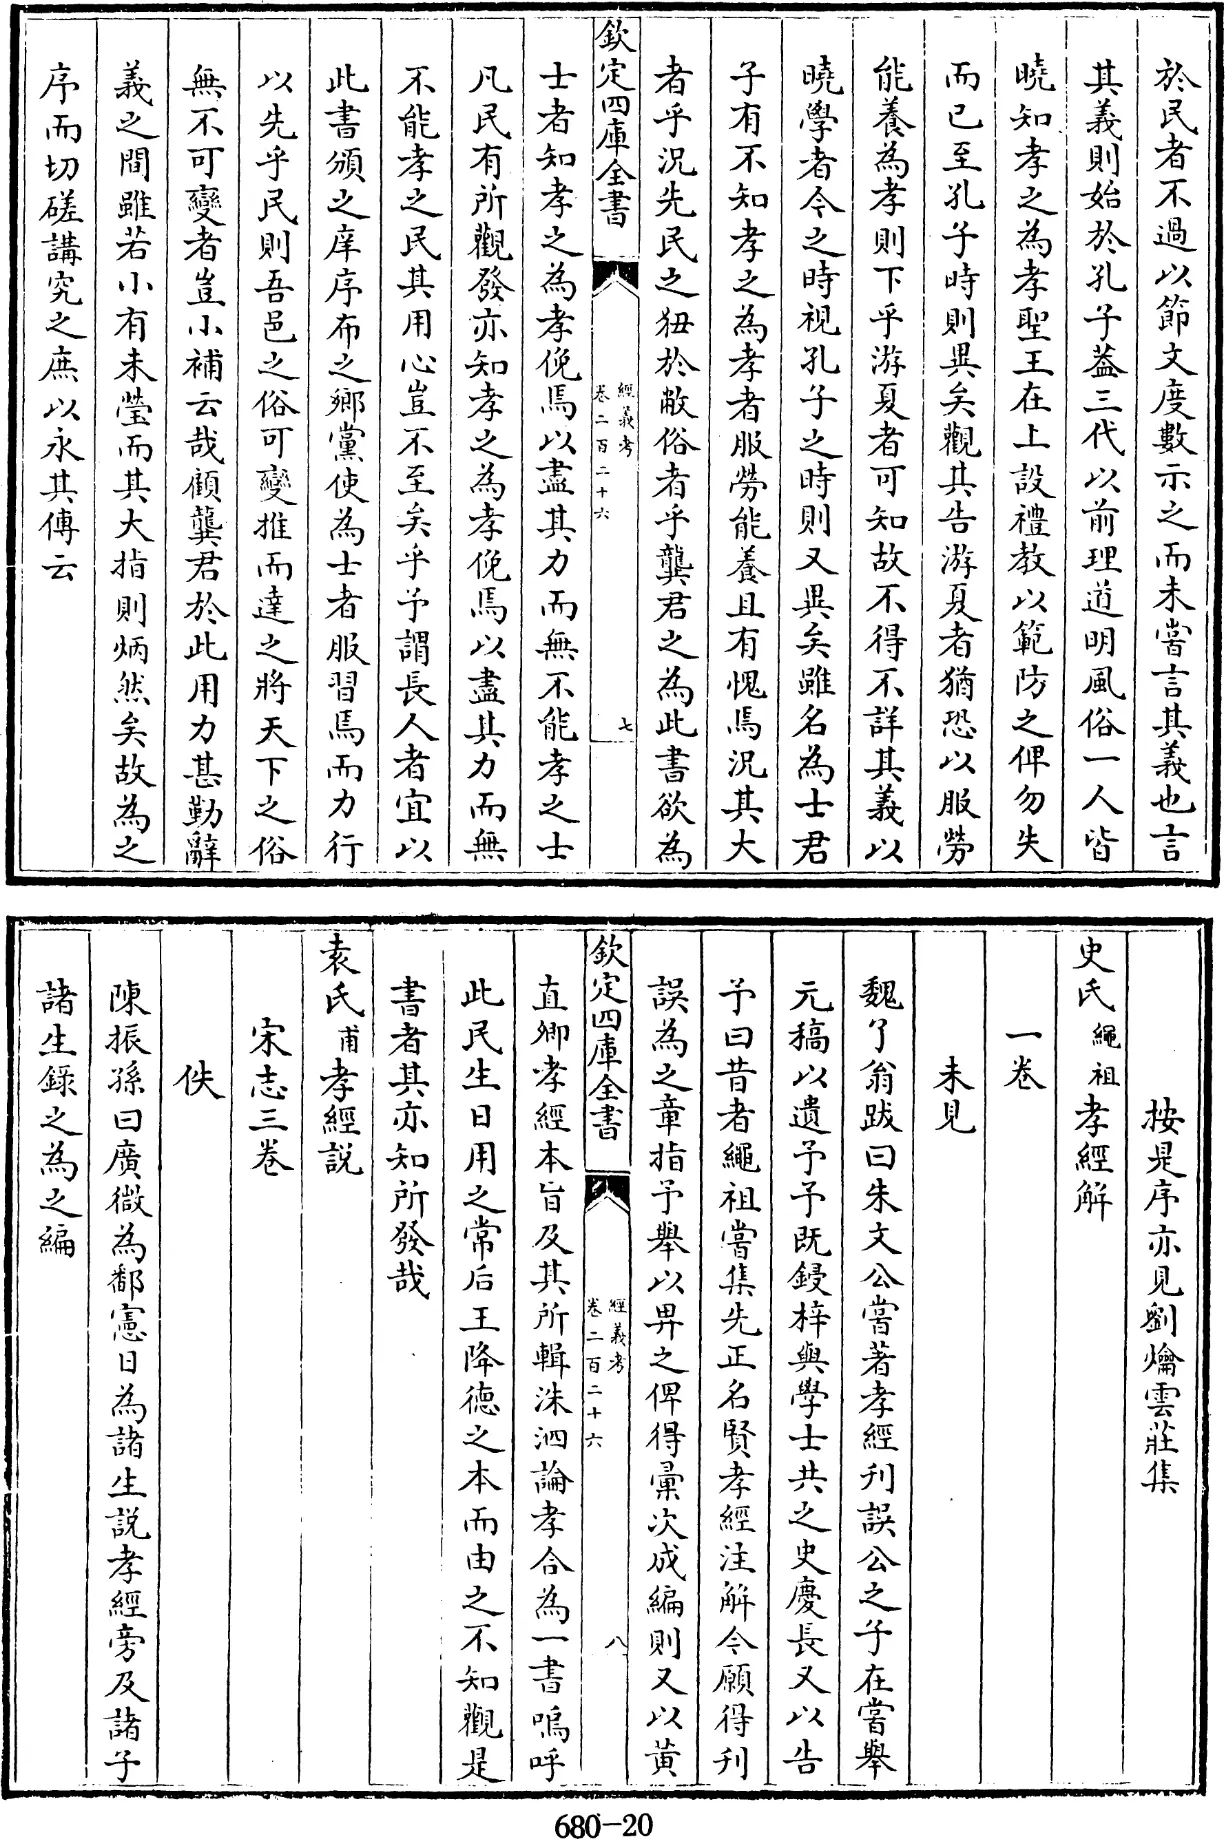 於民者不過以節文度數示之而未嘗言其義也言
其義則始於孔子蓋三代以前理道明風俗一人皆
曉知孝之為孝聖王在上設禮教以範防之俾勿失
而已至孔子時則異矣觀其告游夏者猶恐以服勞
能養為孝則下乎游夏者可知故不得不詳其義以
曉學者今之時視孔子之時則又異矣雖名為士君
子有不知孝之為孝者服勞能養且有愧焉況其大
者乎況先民之狃於敝俗者乎龔君之為此書欲為
欽定四庫全書
經義考
卷二百二十六
七
士者知孝之為孝俛焉以盡其力而無不能孝之士
凡民有所觀發亦知孝之為孝俛焉以盡其力而無
不能孝之民其用心豈不至矣乎予謂長人者宜以
此書頒之庠序布之鄉黨使為士者服習焉而力行
以先乎民則吾邑之俗可變推而達之將天下之俗
無不可變者豈小補云哉顧龔君於此用力甚勤辭
義之間雖若小有未瑩而其大指則炳然矣故為之
序而切磋講究之庶以永其傳云
按是序亦見劉爚雲莊集
史氏繩祖孝經解
一卷
未見
魏了翁跋曰朱文公嘗著孝經刊誤公之子在嘗舉
元稿以遺予予既鋟梓與學士共之史慶長又以告
予曰昔者繩祖嘗集先正名賢孝經注解今願得刊
誤為之章指予舉以畀之俾得彙次成編則又以黃
欽定四庫全書
經義考
卷二百二十六
八
直卿孝經本旨及其所輯洙泗論孝合為一書嗚呼
此民生日用之常后王降德之本而由之不知觀是
書者其亦知所發哉
袁氏甫孝經說
宋志三卷
佚
陳振孫曰廣微為鄱憲日為諸生說孝經旁及諸子
諸生錄之為之編
680-20